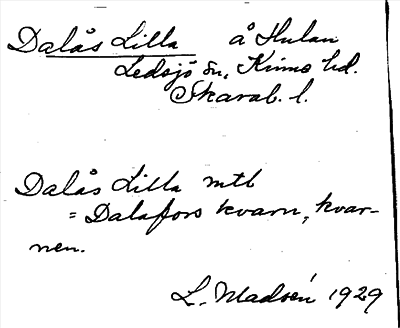 Dalås Lilla å Hulan
Ledsjö sn, Kinne hd.
Skarab. l.
Dalås Lilla mtb
= Dalafors kvarn, kvar-
nen.
L. Madsén 1929